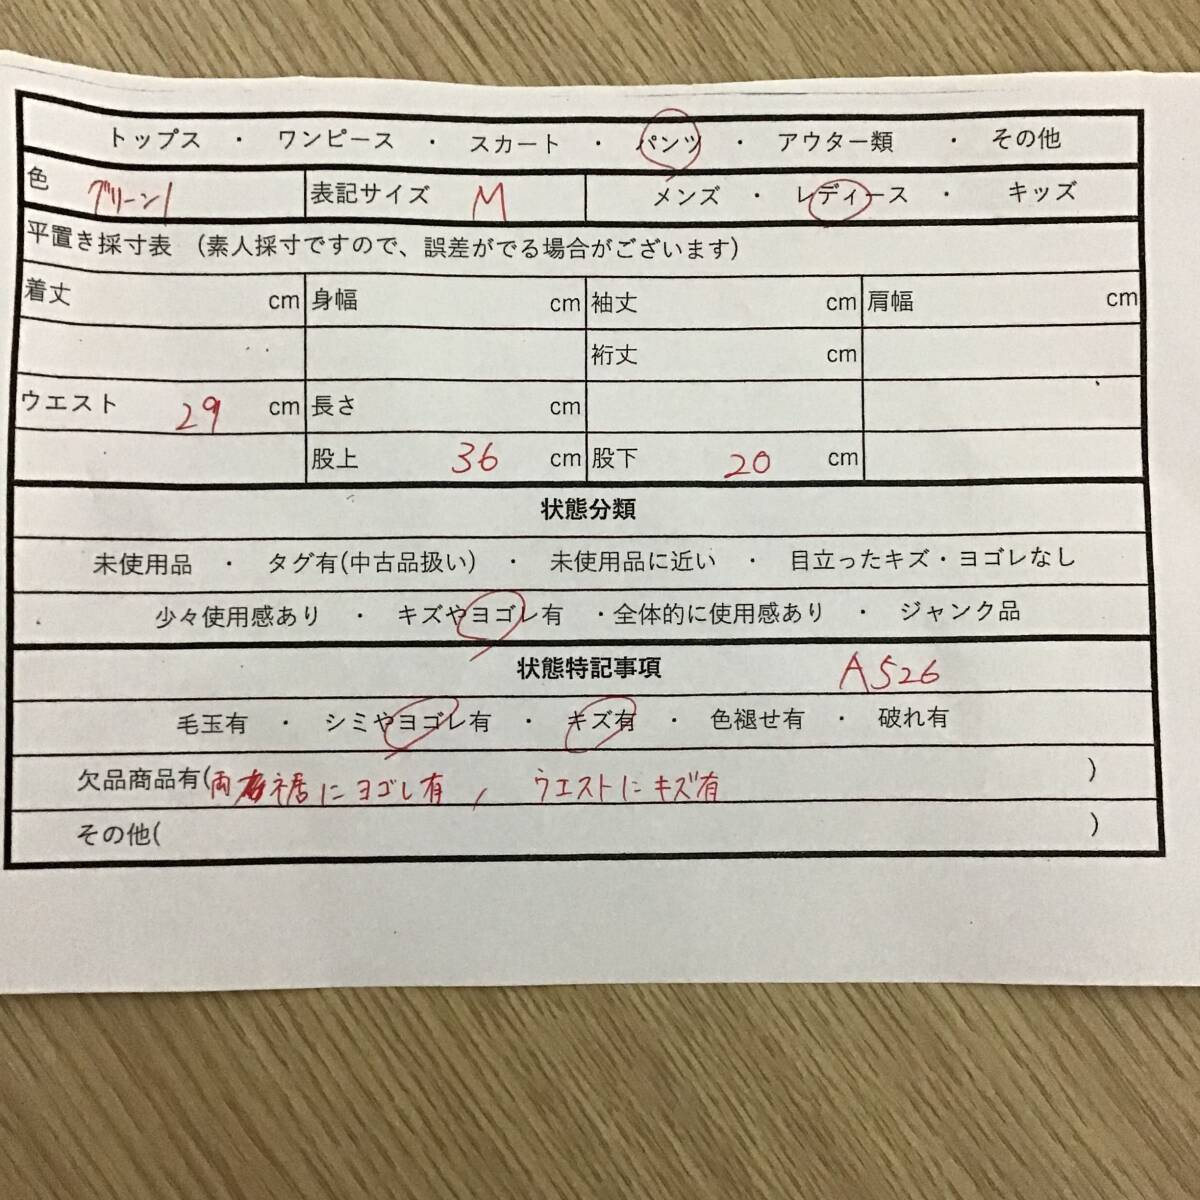 トップス ・ ワンピース ・ スカート ・ パンツ ・ アウター類 ・ その他
色 グリーン 表記サイズ M メンズ ・ レディース ・ キッズ
平置き採寸表 (素人採寸ですので、誤差がでる場合がございます)
着丈 cm 身幅 cm 袖丈 cm 肩幅 cm
裄丈 cm
ウエスト 29 cm 長さ cm
股上 36 cm 股下 20 cm
状態分類
未使用品 ・ タグ有(中古品扱い) ・ 未使用品に近い ・ 目立ったキズ・ヨゴレなし
少々使用感あり ・ キズやヨゴレ有 ・全体的に使用感あり ・ ジャンク品
状態特記事項 A526
毛玉有 ・ シミやヨゴレ有 ・ キズ有 ・ 色褪せ有 ・ 破れ有
欠品商品有(両裾にヨゴレ有, ウエストにキズ有 )
その他( )